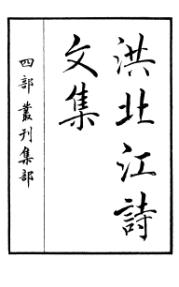 洪北江詩
文集
四部叢刊集部